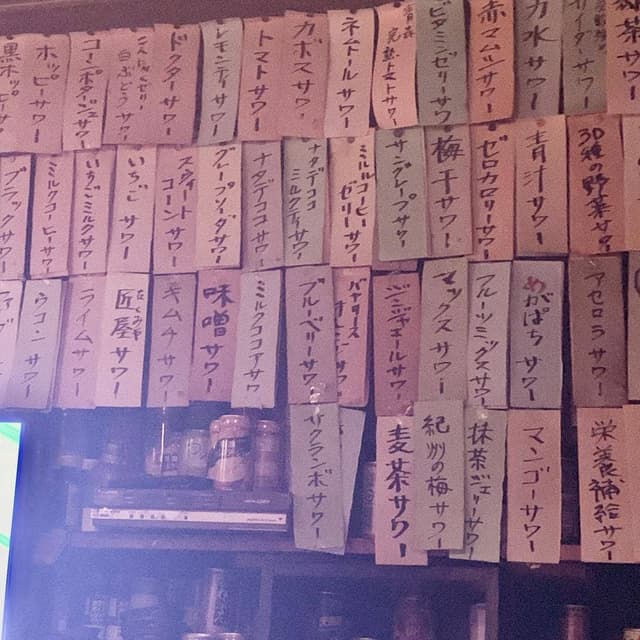 ホッピーサワー
コーンポタージュサワー
ドクターサワー
レモンティサワー
トマトサワー
カボスサワー
ネクタールサワー
完熟トマトサワー
ビタミンゼリーサワー
赤マムシサワー
力水サワー
サイダーサワー
ブラックサワー
ミルクコーヒーサワー
いちごミルクサワー
いちごサワー
スウィートコーンサワー
グレープソーダサワー
ナタデココサワー
ナタデココミルクティサワー
ミルクコーヒーゼリーサワー
サングレープサワー
梅干サワー
ゼロカロリーサワー
青汁サワー
30種の野菜サワー
ウコンサワー
ライムサワー
匠屋サワー
キムチサワー
味噌サワー
ミルクココアサワー
ブルーベリーサワー
ジンジャエールサワー
マックスサワー
フルーツミックスサワー
めがぱらサワー
アセロラサワー
サクランボサワー
麦茶サワー
紀州の梅サワー
抹茶ジュレサワー
マンゴーサワー
栄養補給サワー